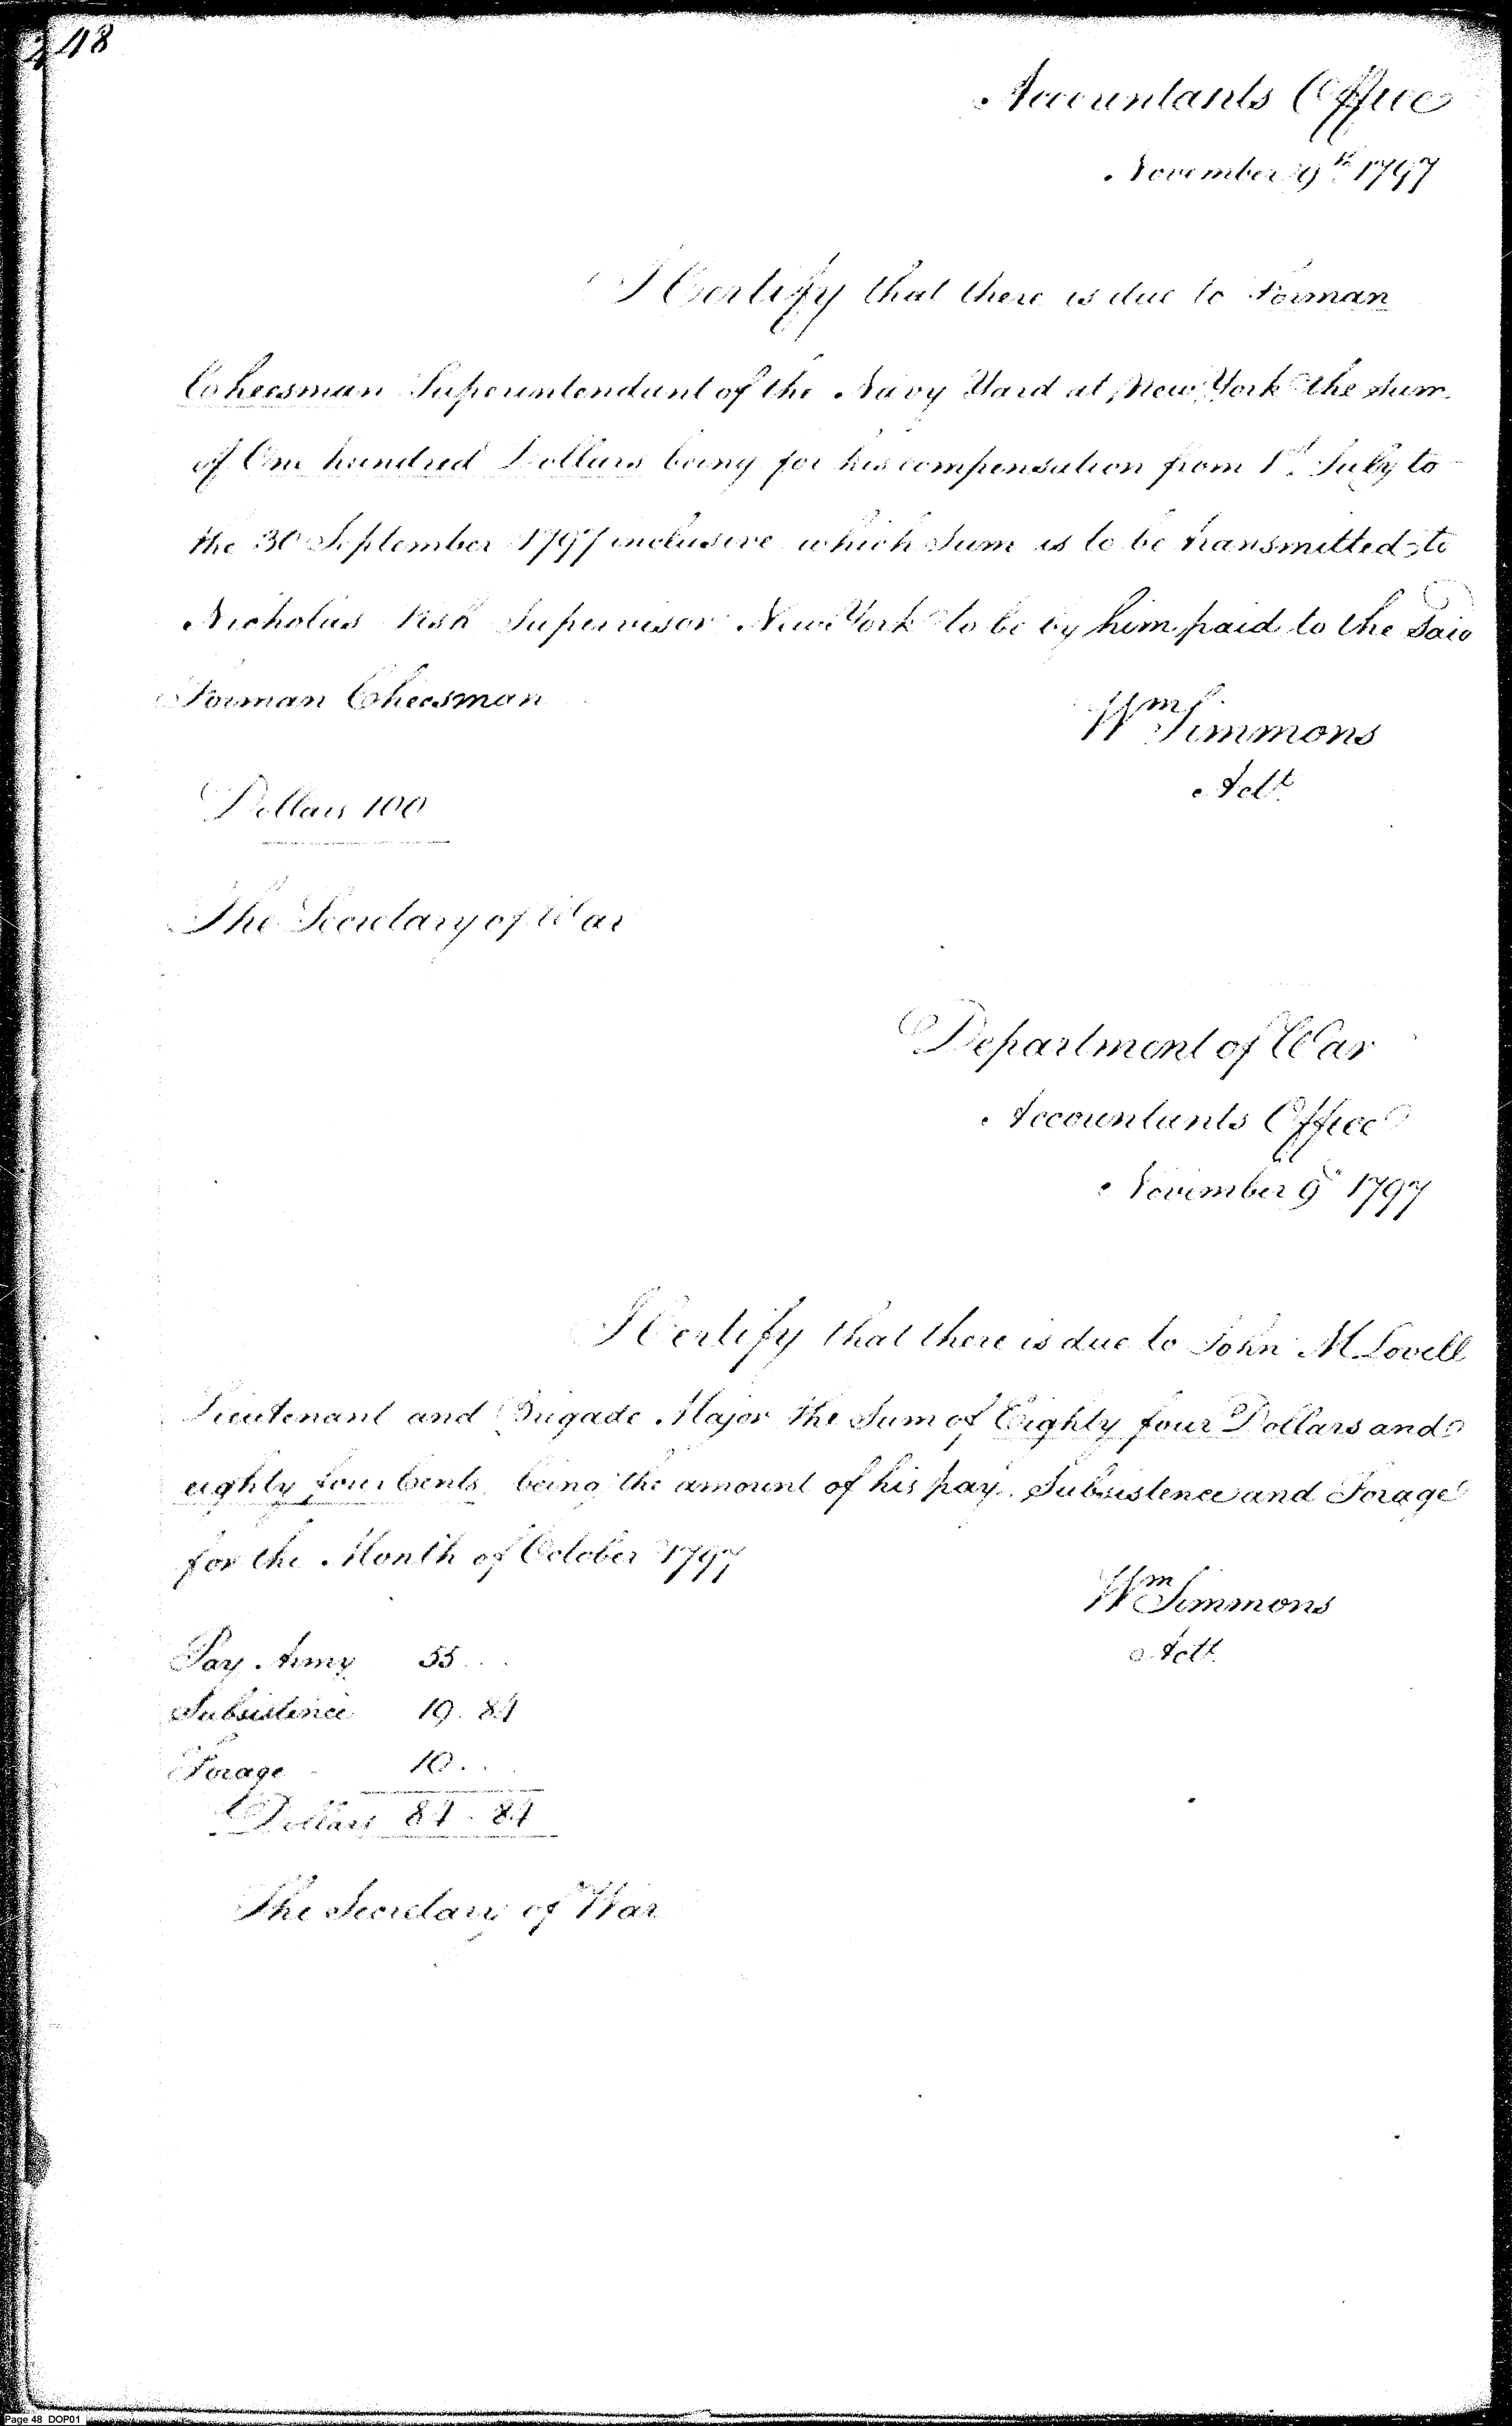 48
Accountants Office
November 9th 1797
I Certify that there is due to Forman
Cheesman Superintendant of the Navy Yard at New York the sum
of One hundred Dollars being for his compensation from 1st July to
the 30 September 1797 inclusive which Sum is to be transmitted to
Nicholas Fish Supervisor New York to be by him paid to the Said
Forman Cheesman
Wm Simmons
Actt
Dollars 100
The Secretary of War
Department of War
Accountants Office
November 9th 1797
I Certify that there is due to John M Lovell
Lieutenant and Brigade Major the Sum of Eighty four Dollars and
eighty four Cents being the amount of his pay. Subsistence and Forage
for the Month of October 1797
Wm Simmons
Actt
Pay Army 55 . .
Subsistence 19. 84
Forage 10 . .
Dollars 84 - 84
The Secretary of War
Page 48 DOP01